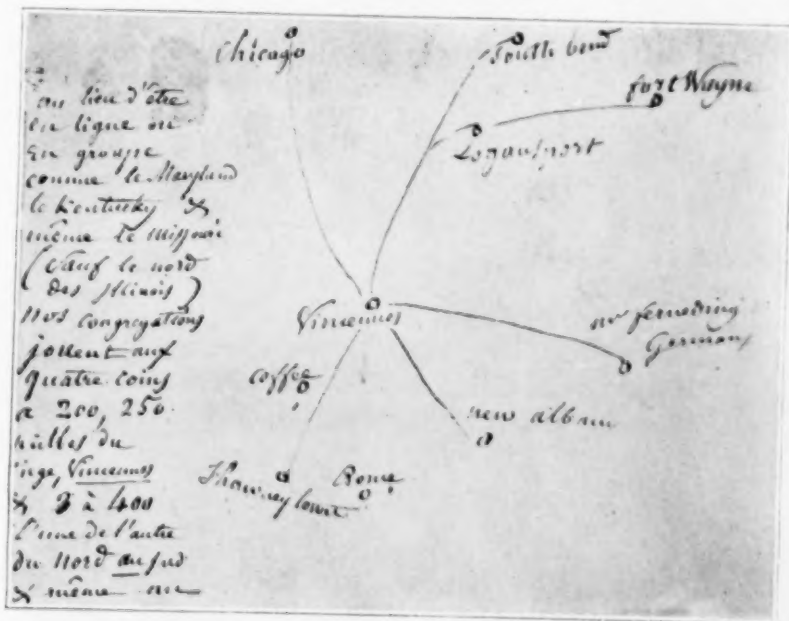 au lieu d'être
en ligne ou
en groupe
comme le Maryland
le Kentusky &
même le Missouri
(Sauf le nord
des Illinois)
nos congregations
jouent aux
quatre coins
a 200, 250
milles du
Vincennes
& 3 à 400
l'une de l'autre
du Nord au sud
& même au
Chicago
South bend
fort Wayne
Logansport
Vincennes
mr ferneding
Germans
coffee
new alban
Shawney town
Rome